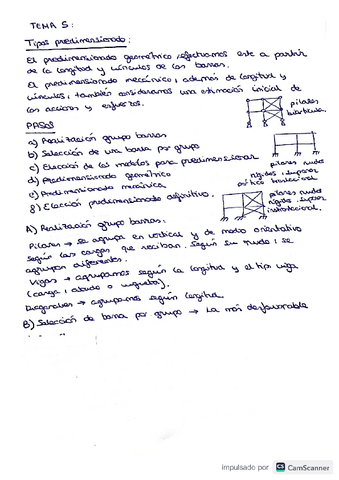 TEMA 5:
Tipos predimensionado:
El predimensionado geométrico, efectuamos este a partir
de la longitud y vínculos de las barras.
El predimensionado mecánico, además de longitud y
vínculos, también consideramos una estimación inicial de
las acciones y esfuerzos.
pilares
biarticula.
PASOS
a) Realización grupo barras
b) Selección de una barra por grupo
c) Elección de los modelos para predimensionar
d) Predimensionado geométrico
e) Predimensionado mecánico
f) Elección predimensionado definitivo.
pilares nudos
rígidos, superior
traslacional
pilares nudos
rígidos, superior
intraslacional
A) Realización grupo barras:
Pilares → se agrupa en vertical y de modo orientativo
según las cargas que reciban. Según su nudo, se
agrupan diferentes.
Vigas → agrupamos según la longitud y el tipo viga
(carga, atado o
Diagonales → agrupamos según longitud.
B) Selección de barra por grupo → La más desfavorable
impulsado por CS CamScanner